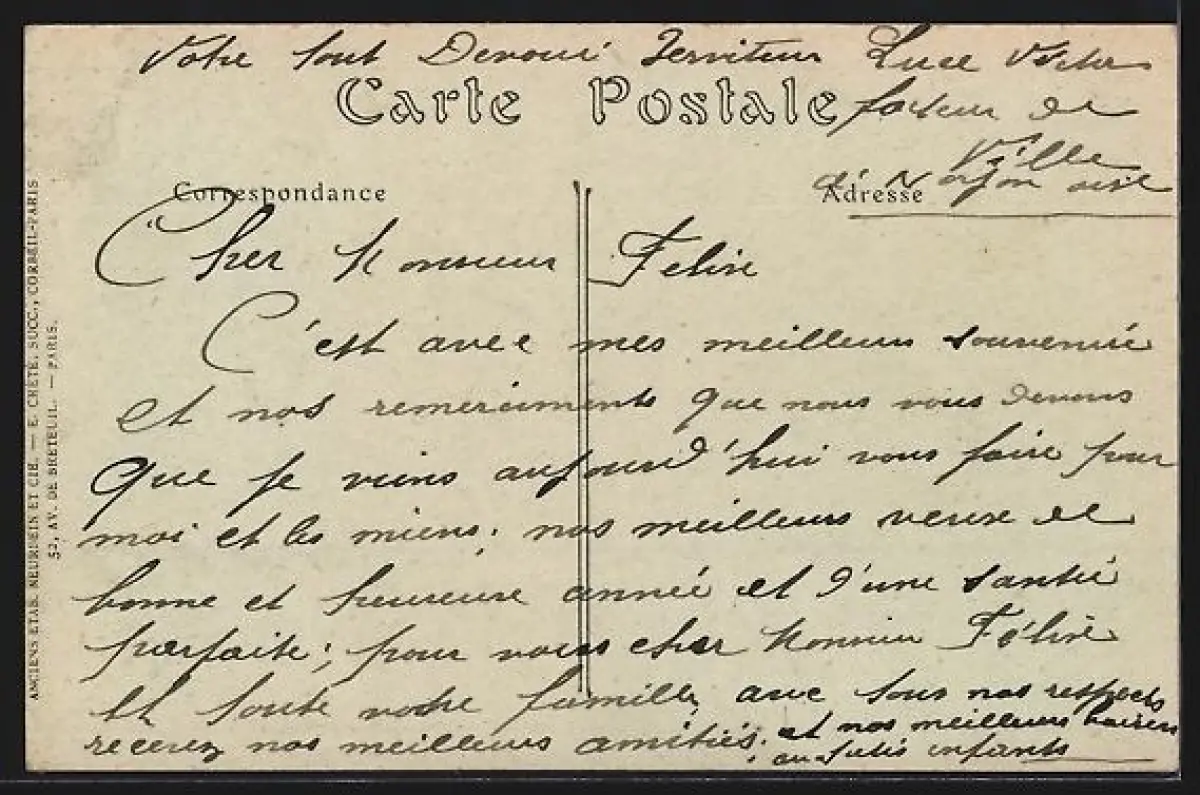 Votre tout Devoué Serviteur Luce
facteur de
Ville
Carte Postale
Correspondance
Adresse
Cher Monsieur Felixe
C'est avec mes meilleurs souvenirs
et nos remerciments que nous vous devons
que je viens aujourd'hui vous faire pour
moi et les miens; nos meilleurs veux de
bonne et heureuse année et d'une santé
parfaite; pour vous cher Monsieur Félixe
et toute votre famille, avec tous nos respects
recevez nos meilleurs amitiés. et nos meilleurs baisers
aux petits enfants
ANCIENS ETAB. NEURDEIN ET CIE. — E. CRÉTÉ, SUCC., CORBEIL-PARIS
52, AV. DE BRETEUIL. — PARIS.